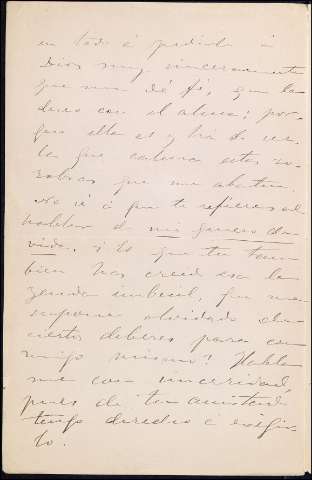 en todo á pedirle á
Dios muy sinceramente
que me dé fé, que la
deseo con el alma; por-
que ella es y ha de ser
la que calmará estas zo-
zobras que me abaten.
No sé á que te refieres al
hablar de mi genero de
vida. ¿ Es que tu tam
bien has creido esa le
yenda imbécil, que me
supone olvidado de
ciertos deberes para con
migo mismo? Habla
me con sinceridad,
pues de tu amistad
tengo derecho á exigir
lo.